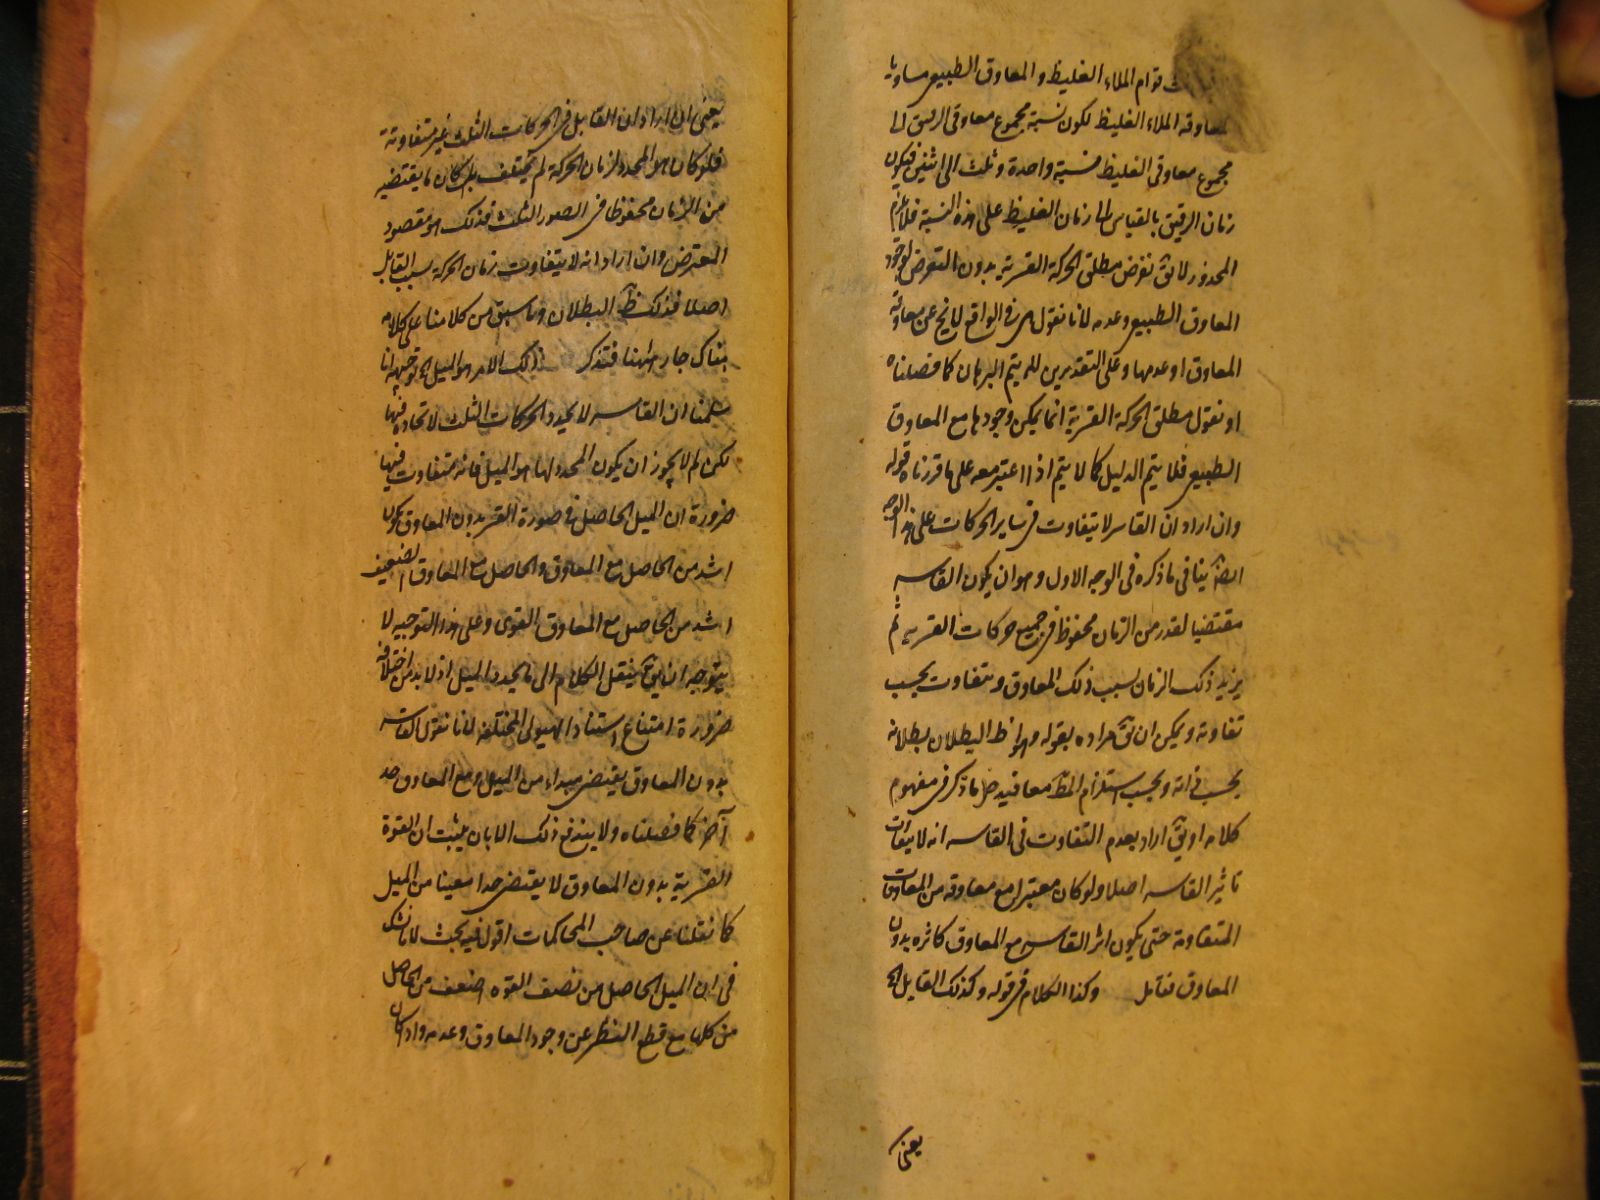 قوام الملاء الغليظ و المعاوق الطبيعى مساويا
لمعاوقه الملاء الغليظ لكون نسبة مجموع معاوقى الرقيق الى
مجموع معاوقى الغليظ نسبة واحدة و ثلث الى اثنين فيكون
زمان الرقيق بالقياس الى زمان الغليظ على هذه النسبة فلا يلزم
المحذور لا يق نفرض مطلق الحركة القسرية بدون التعرض لوجود
المعاوق الطبيعى و عدمه لانا نقول هى فى الواقع لا يخ عن معاوقة
المعاوق او عدمها و على التقديرين لم يتم البرهان كما فصلناه
او نقول مطلق الحركة القسرية انما يمكن وجودها مع المعاوق
الطبيعى فلا يتم الدليل كما لا يتم اذا اعتبر معه على ما قررناه قوله
وان اراد ان القاسر لا يتفاوت فى ساير الحركات على هذا الوجه
ايضا ينافى ما ذكره فى الوجه الاول و هو ان يكون القاسر
مقتضيا لقدر من الزمان محفوظ فى جميع حركات القسرية ثم
يزيد ذلك الزمان بسبب ذلك المعاوق و يتفاوت بحسب
تفاوته و يمكن ان يق مراده بقوله و هو ظ البطلان بطلانه
بحسب ذاته و بحسب استلزام المط معا فيدخل ما ذكر فى مفهوم
كلامه او يق اراد بعدم التفاوت فى القاسر انه لا يتفاوت
تاثير القاسر اصلا و لو كان معتبرا مع معاوقه من المعاوقات
المتفاوتة حتى يكون اثر القاسر مع المعاوق كاثره بدون
المعاوق فتامل و كذا الكلام فى قوله و كذلك القابل الخ
يعنى
يعنى ان اراد ان القابل فى الحركات الثلث غير متفاوتة
فلو كان هو المحدد لزمان الحركة لم يختلف بل كان ما يقتضيه
من الزمان محفوظا فى الصور الثلث فذلك هو مقصود
المعترض وان اراد انه لا يتفاوت زمان الحركة بسبب القابل
اصلا فذلك ظ البطلان و ما سبق من كلامنا على كلامه
هناك جار ههنا فتذكر ذلك الامر هو الميل الخ توجيهه انا
سلمنا ان القاسر لا يحدد الحركات الثلث لاتحاده فيها
لكن لم لا يجوز ان يكون المحدد لها هو الميل فانه متفاوت فيها
ضرورة ان الميل الحاصل فى صورة القسر بدون المعاوق يكون
اشد من الحاصل مع المعاوق و الحاصل مع المعاوق الضعيف
اشد من الحاصل مع المعاوق القوى و على هذا التوجيه لا
يتوجه ان يق ينقل الكلام الى ما يحدد الميل اذ لا بد من اختلافه
ضرورة امتناع استناد الميول المختلفه لانا نقول القاسر
بدون المعاوق يقتضى مبداء من الميل و مع المعاوق حد
آخر كما فصلناه و لا يندفع ذلك الا بان يثبت ان القوة
القسرية بدون المعاوق لا يقتضى حدا معينا من الميل
كما نقلنا عن صاحب المحاكمات اقول فيه بحث لانا نشك
فى ان الميل الحاصل من نصف القوه اضعف من الحاصل
من كلها مع قطع النظر عن وجود المعاوق و عدمه و اذا كان